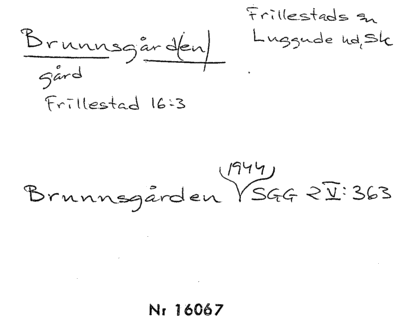 Brunnsgård(en)
Frillestads sn
Luggude hd, Sk
gård
Frillestad 16:3
(1944)
Brunnsgården SGG 2 V: 363
Nr 16067